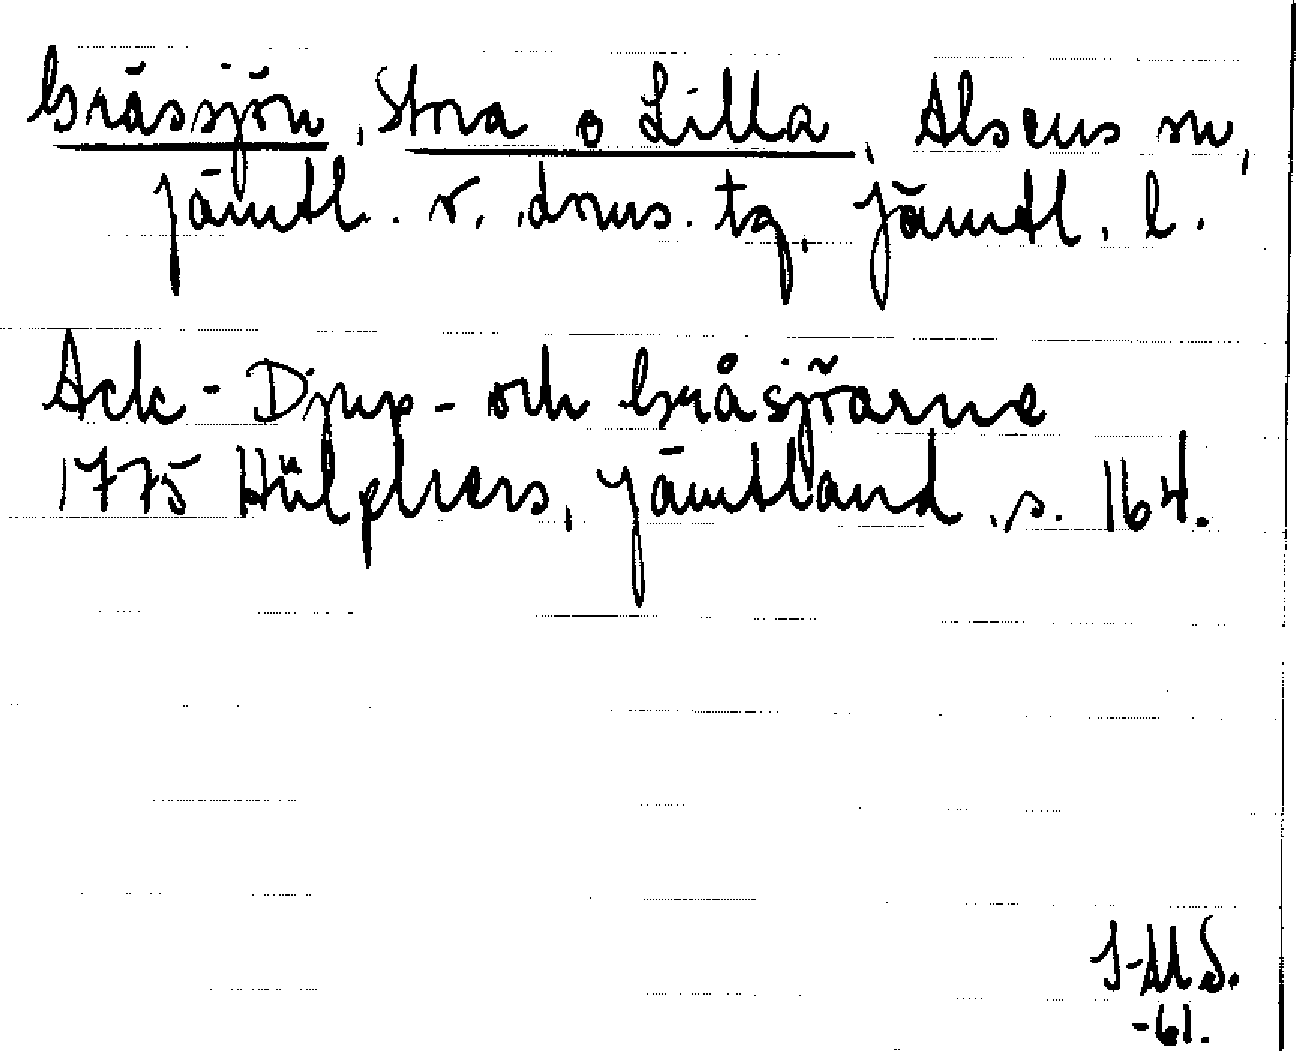 Grässjön, Stora o Lilla, Alsens sn,
Jämtl. v. doms. tg, Jämtl. l.
Ack- Djup- och Gråsjöarne
1775 Hülphers, Jämtland, s. 164.
I-M S.
-61.